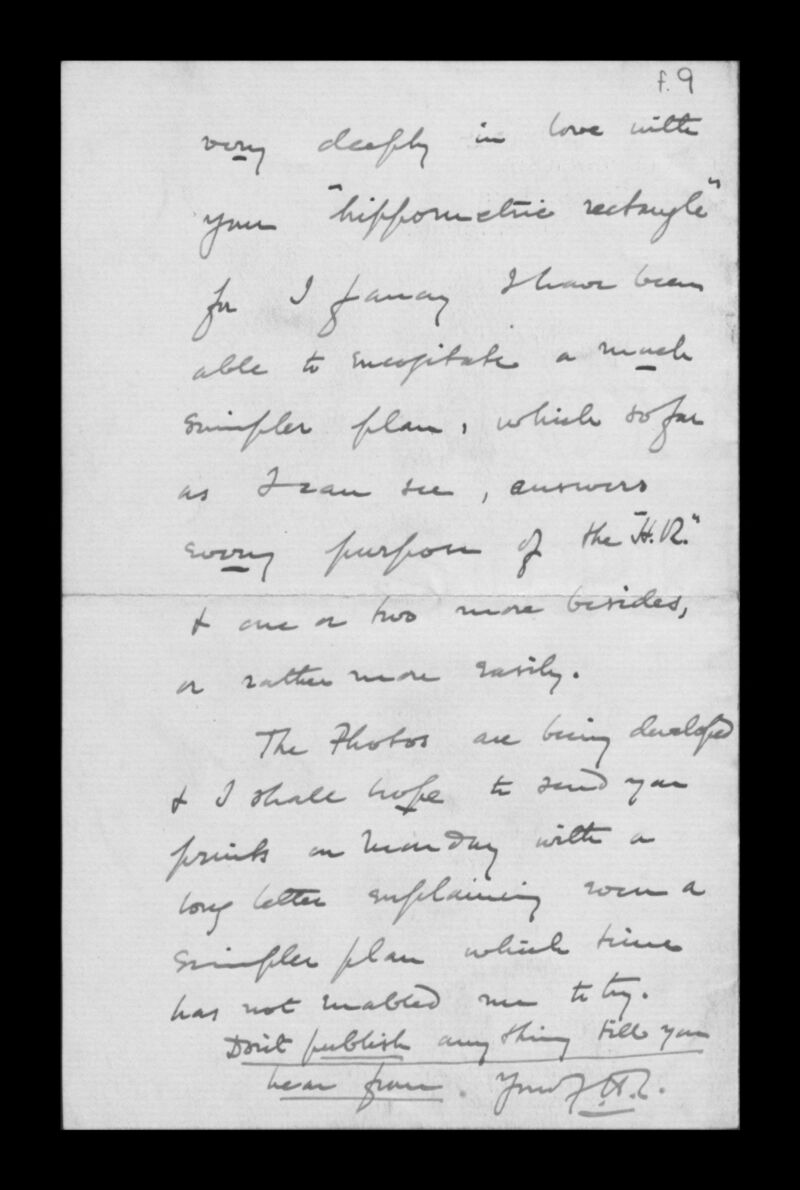 f. 9
very deeply in love with
your "hippometric rectangle"
for I fancy I have been
able to excogitate a much
simpler plan, which so far
as I can see, answers
every purpose of the "H.R."
& one or two more besides,
or rather more easily.
The Photos are being developed
& I shall hope to send you
prints on Monday with a
long letter explaining even a
simpler plan which time
has not enabled me to try.
Don't publish any thing till you
hear from. Yours